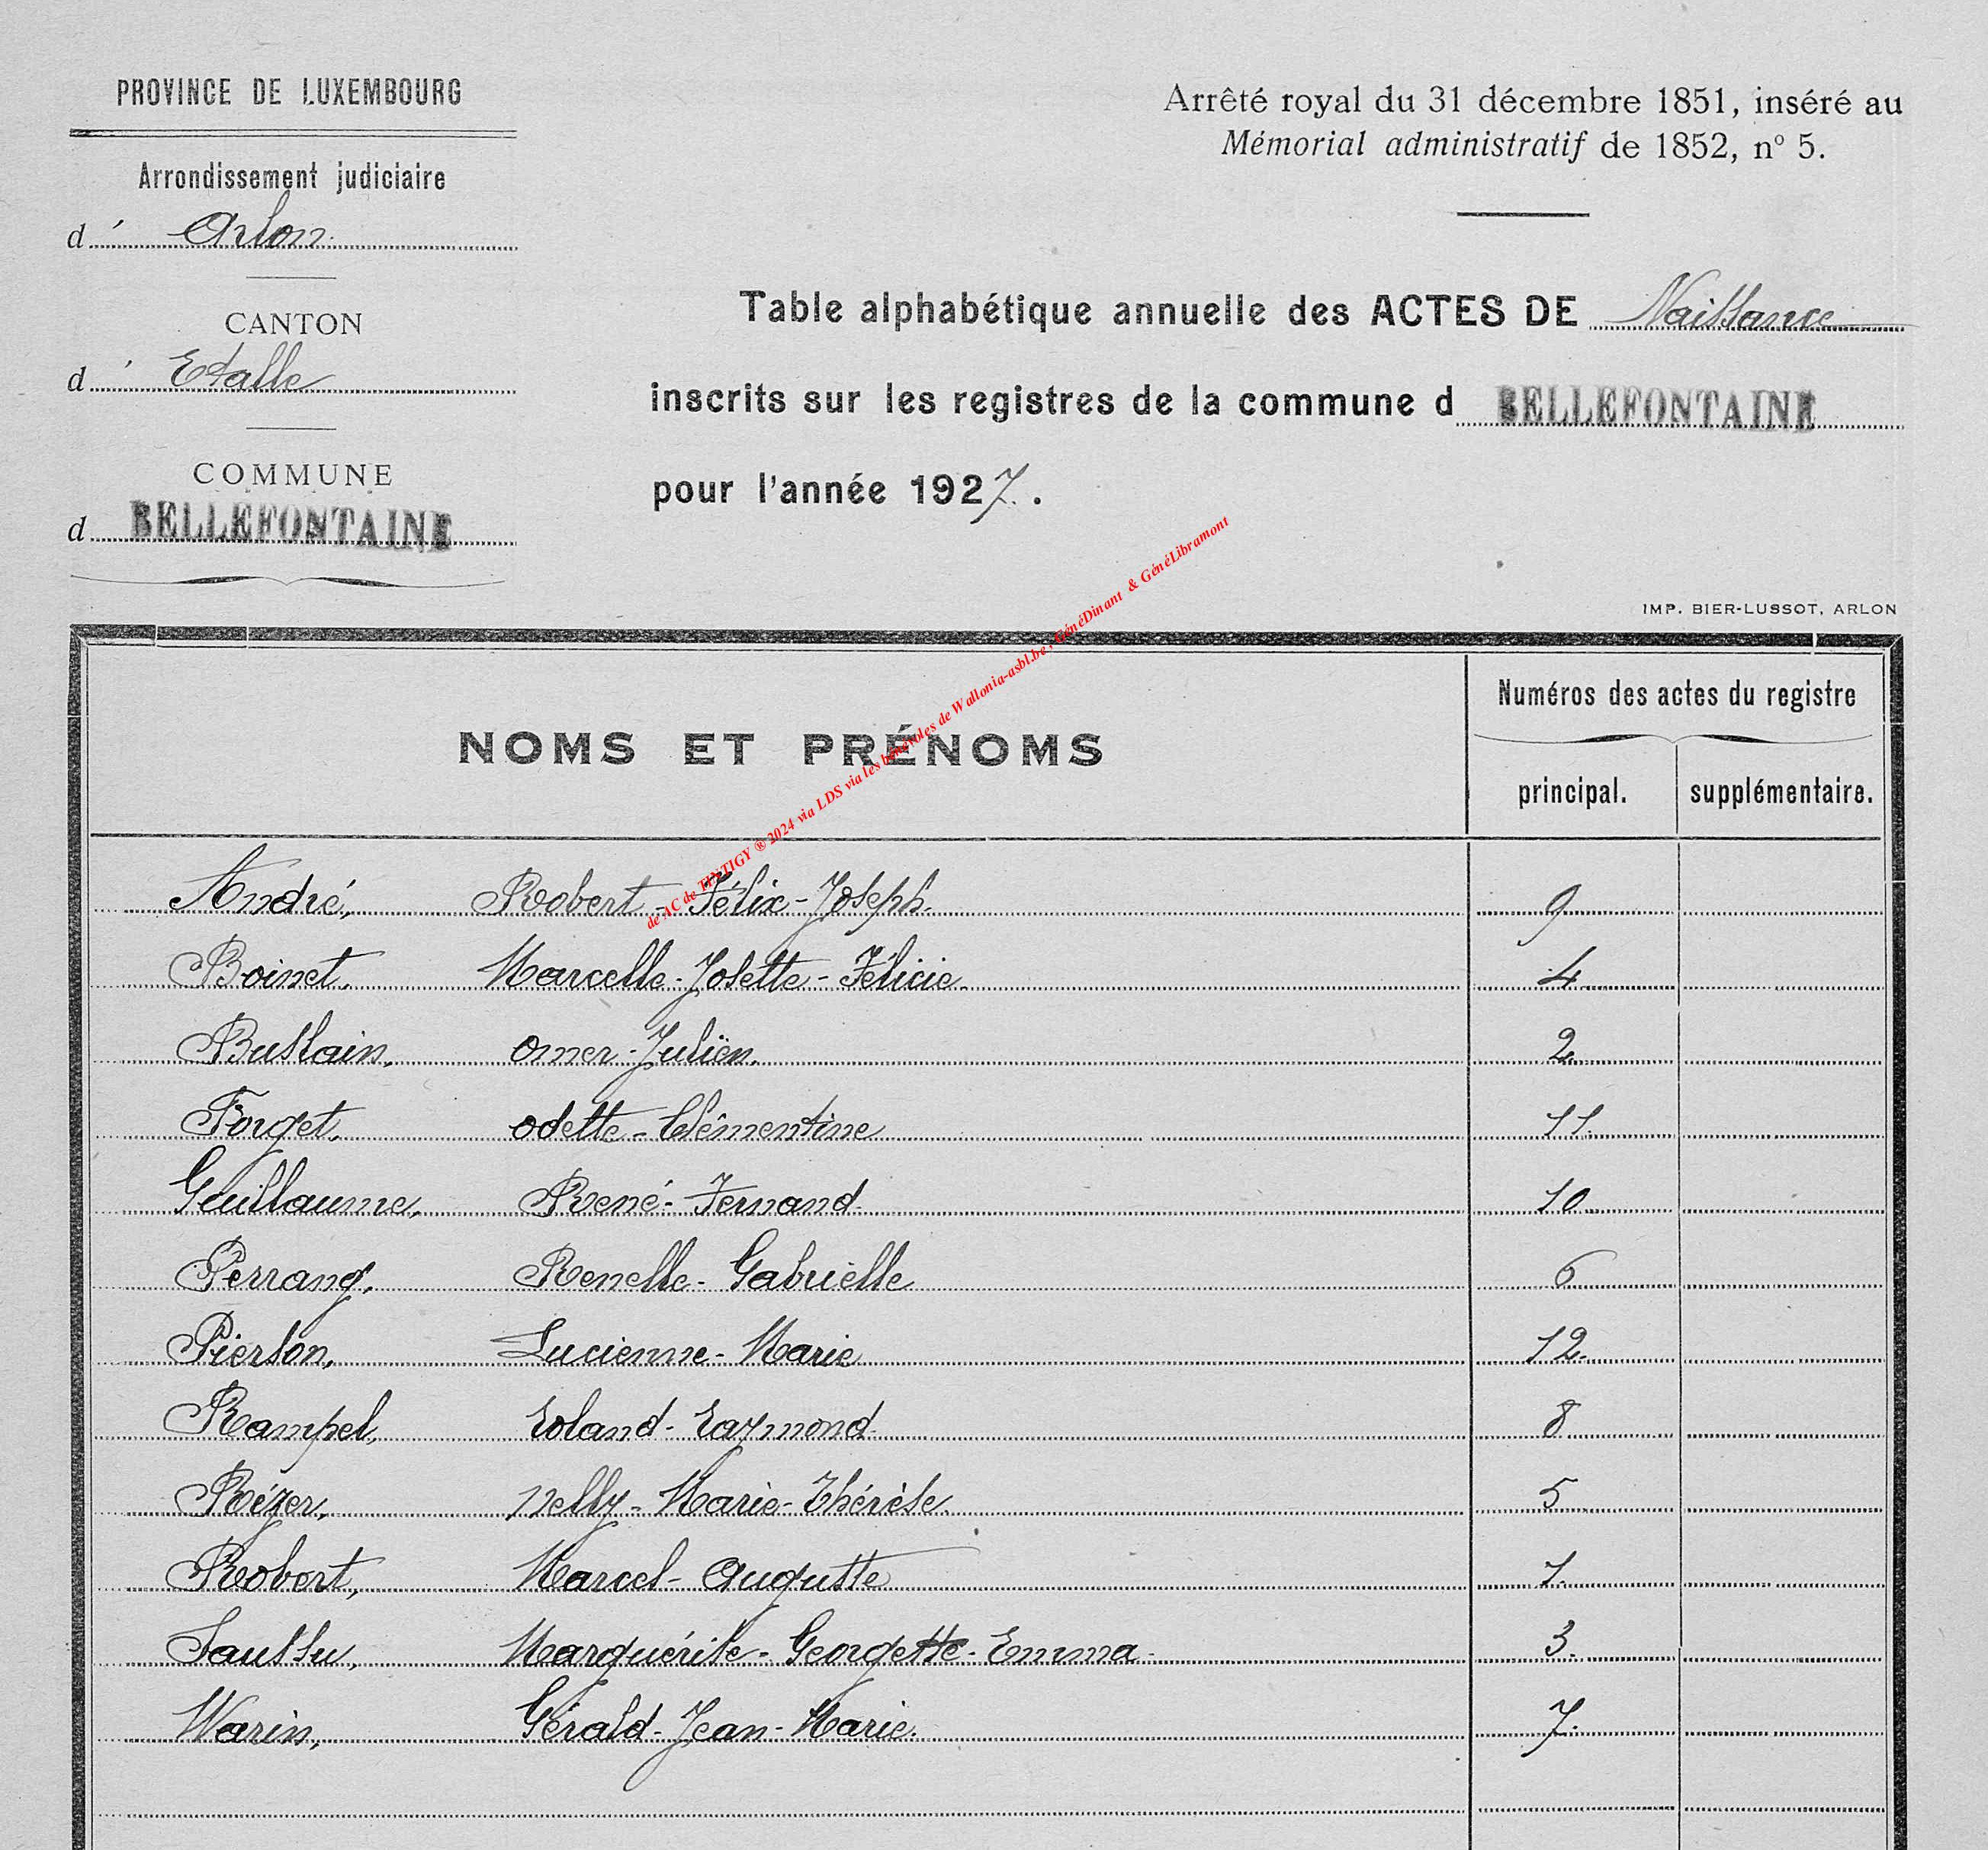 PROVINCE DE LUXEMBOURG
Arrondissement judiciaire
d' Arlon
CANTON
d' Etalle
COMMUNE
d BELLEFONTAINE
Arrêté royal du 31 décembre 1851, inséré au
Mémorial administratif de 1852, nº 5.
Table alphabétique annuelle des ACTES DE Naissance
inscrits sur les registres de la commune d BELLEFONTAINE
pour l'année 1927.
IMP. BIER-LUSSOT, ARLON
de AC de TINTIGY ® 2024 via LDS via les bénévoles de Wallonia-asbl.be, GénéDinant & GénéLibramont
NOMS ET PRÉNOMS
Numéros des actes du registre
principal. supplémentaire.
André, Robert-Félix-Joseph. 9
Boinet, Marcelle-Josette-Félicie. 4
Buslain, Omer-Juliën. 2.
Forget, Odette-Clémentine 11.
Guillaume, René-Fernand. 10
Perrang, Renelle-Gabrielle 6
Pierson, Lucienne-Marie 12.
Rampel, Roland-Raymond. 8
Rézer, Nelly-Marie-Thérèse. 5
Robert, Marcel-Auguste 1.
Saussu, Marguérite-Georgette-Emma. 3.
Warin, Gérald-Jean-Marie. 7.